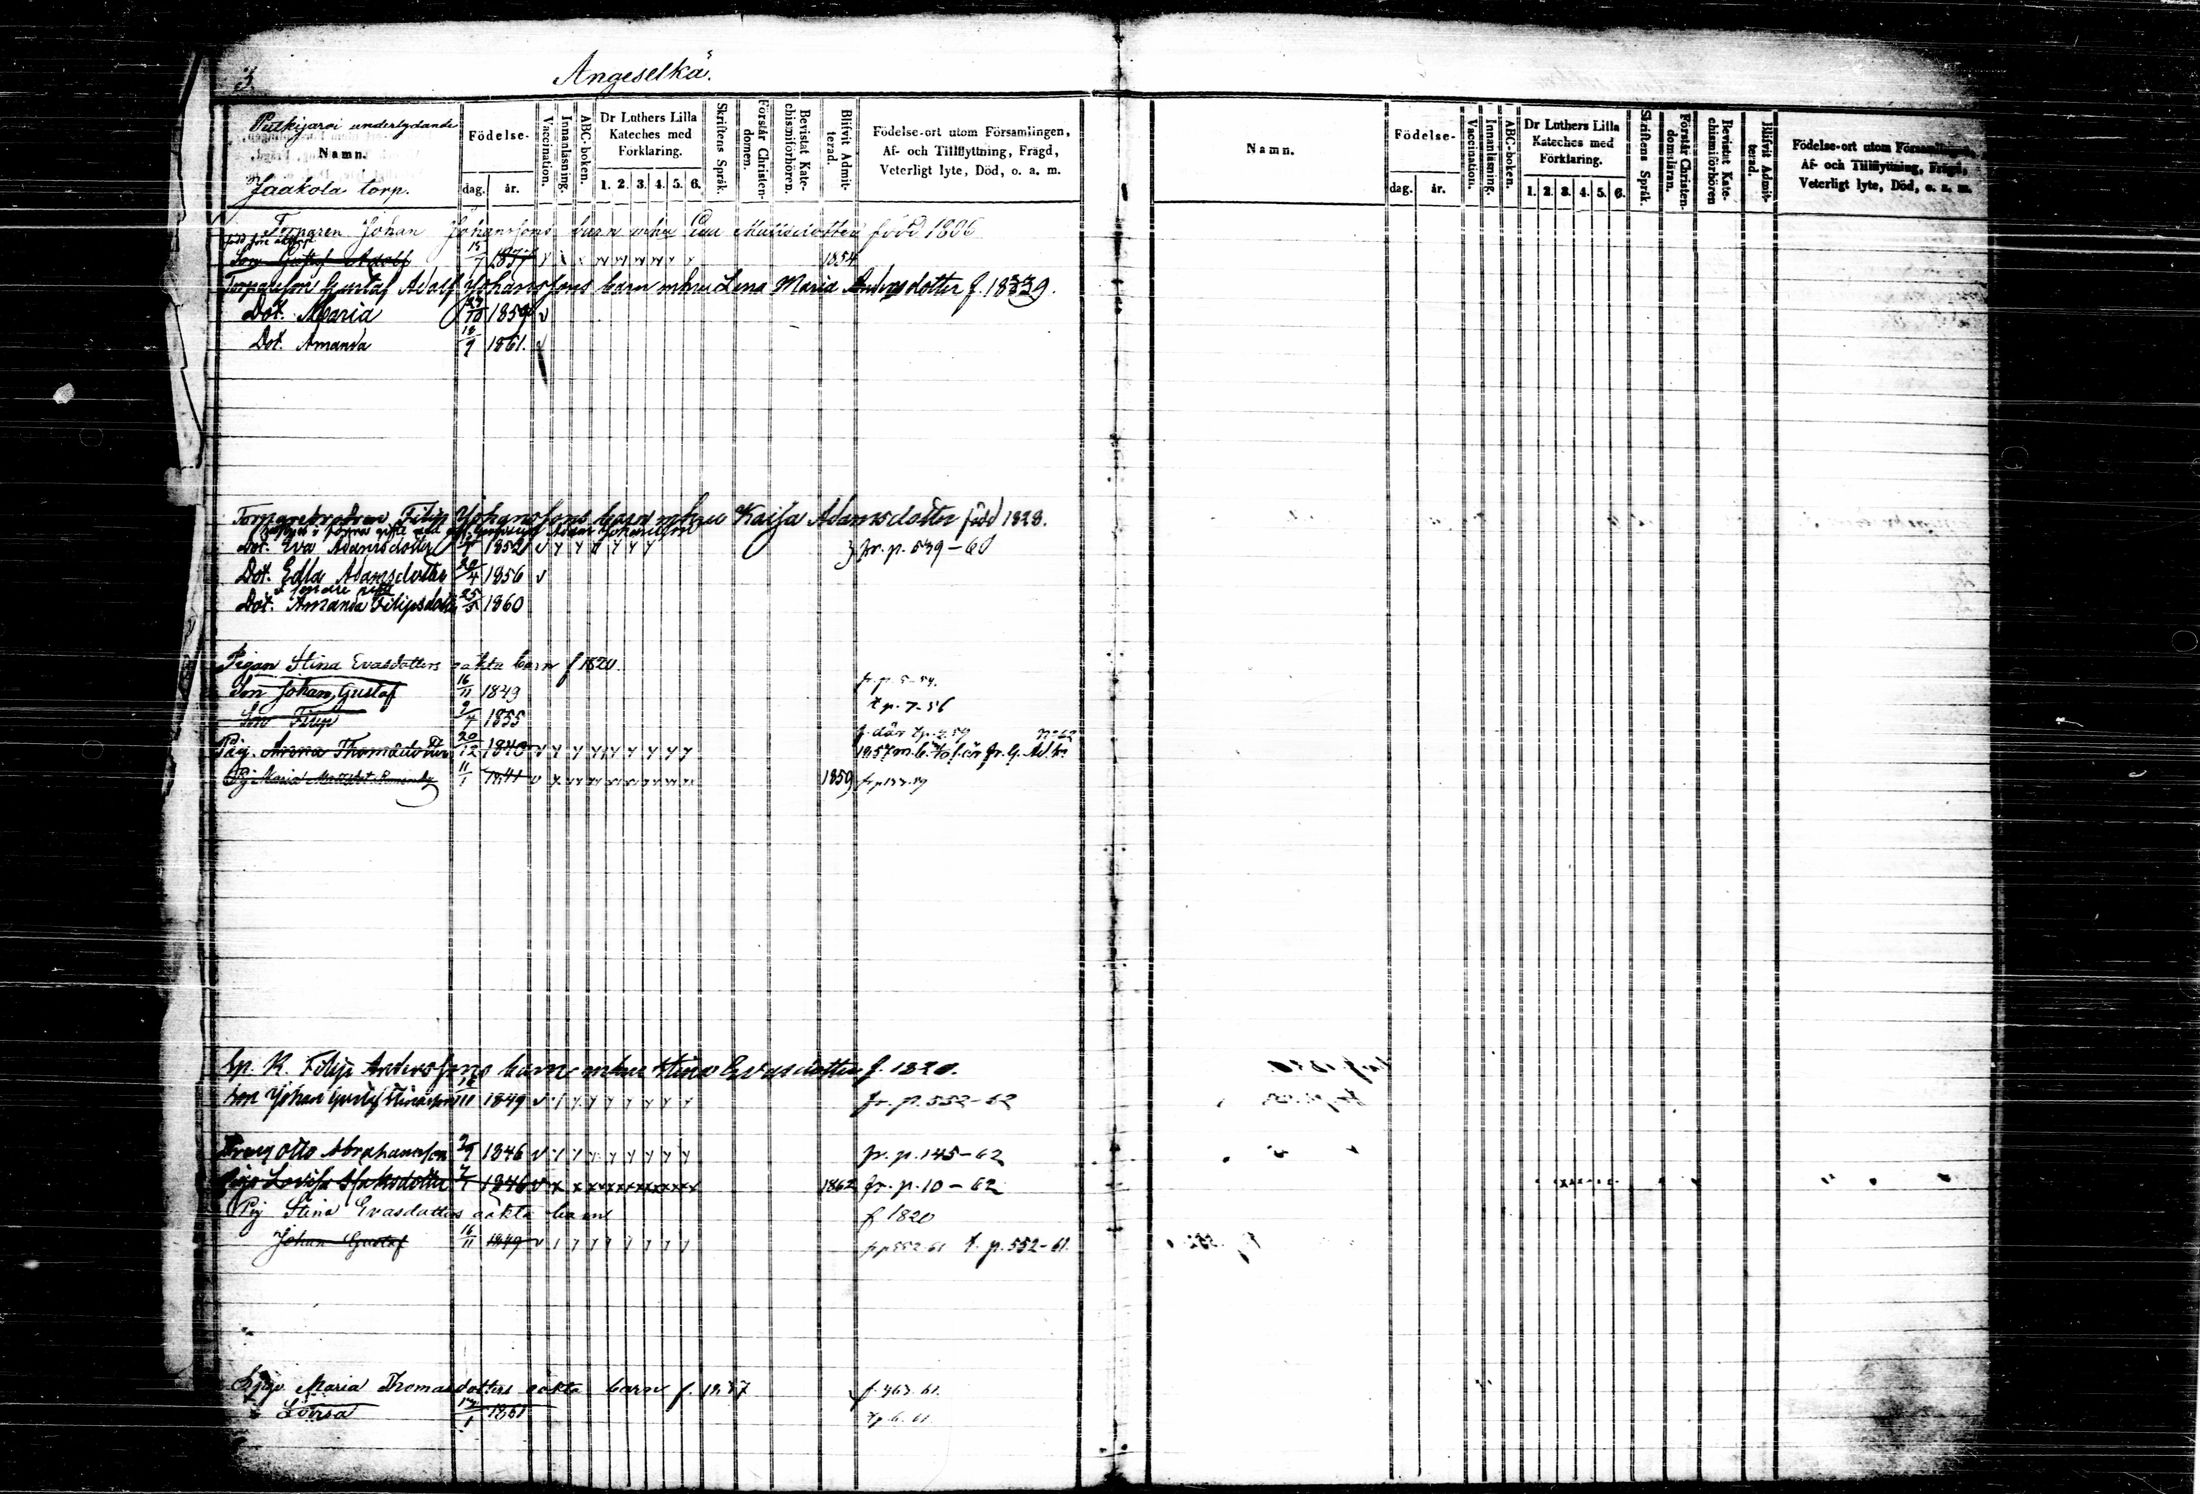 3.
Angeselkä.
Putkijarvi underlydande
Namn.
Jaakola torp.
Födelse-
dag. år.
Vaccination.
Innanläsning.
ABC-boken.
Dr Luthers Lilla Kateches med Förklaring.
1. 2. 3. 4. 5. 6.
Skriftens Språk.
Förstår Christendomen.
Bevistat Katechismiförhören.
Blifvit Admitterad.
Födelse-ort utom Församlingen,
Af- och Tillflyttning, Frägd,
Veterligt lyte, Död, o. a. m.
Namn.
Födelse-
dag. år.
Vaccination.
Innanläsning.
ABC-boken.
Dr Luthers Lilla Kateches med Förklaring.
1. 2. 3. 4. 5. 6.
Skriftens Språk.
Förstår Christendomsläran.
Bevistat Katechismiförhören
Blifvit Admitterad.
Födelse-ort utom Församlingen,
Af- och Tillflyttning, Frägd,
Veterligt lyte, Död, o. a. m.
Torparen Johan Johanssons barn mhu Eva Mattsdotter född 1806
Son Gustaf Adolf 15/7 1837 1854
Torpareson Gustaf Adolf Johanssons barn mhu Lena Maria Andersdotter f. 1839.
Dot. Maria 29/10 1859 v
Dot. Amanda 18/9 1861. v
Torparebrodren Filip Johanssons barn mhu Kaisa Adamsdotter född 1828.
Dot. Eva Adamsdotter 1852 v fr. p. 539-60
Dot. Edla Adamsdotter 20/4 1856 v
Dot. Amanda Filipsdotter 25/5 1860
Pigan Stina Evasdotters oäkta barn f 1820.
Son Johan Gustaf 16/11 1849 fr. p. 5-54.
Son Filip 9/7 1855 t p. 7-56
Pig. Anna Thomasdotter 20/12 1840
Pig Maria 11/1 1841 v 1859
Filip Anderssons barn mhu Stina Evasdotter f. 1820.
Son Johan Gustaf Stinasson 16/11 1849 v fr. p. 552-62
Dreng Otto Abrahamsson 2/9 1846 v fr. p. 145-62
Piga Lovisa Isaksdotter 7/1 1846 v 1862 fr. p. 10-62
Pig Stina Evasdotters oäkta barn f 1820
Johan Gustaf 16/11 1849 v fr p 552-61 t. p. 552-61.
Maria Thomasdotters oäkta barn f. 1837 f. 463. 61.
Lovisa 1861 tp. 6. 61.